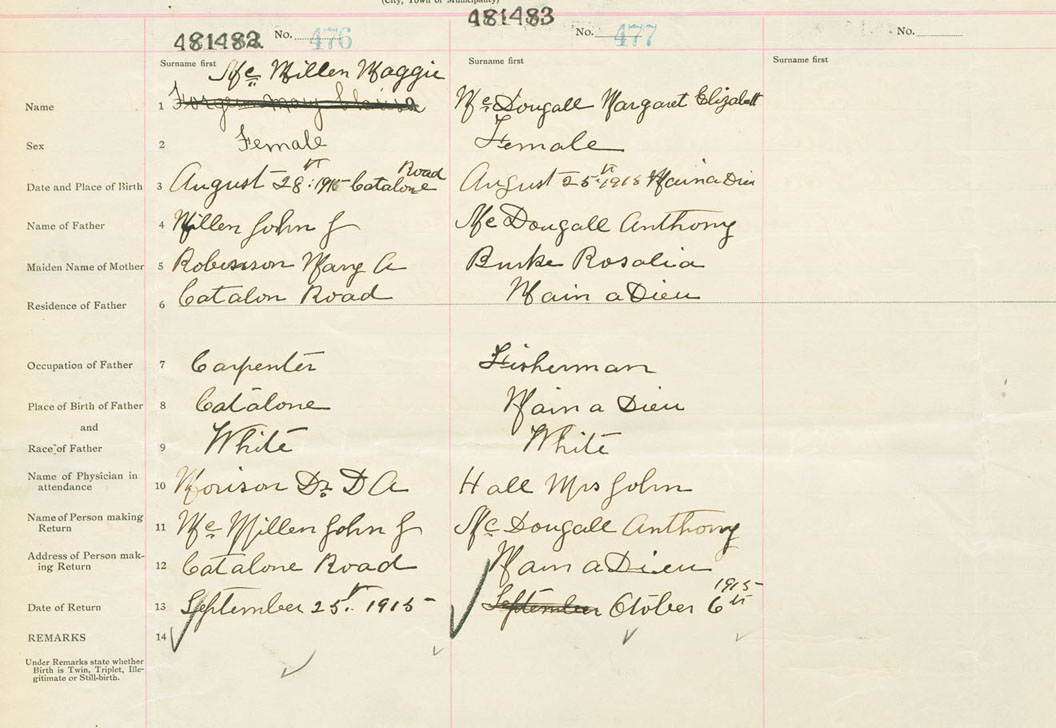 (City, Town or Municipality)
481482 No. 476
481483 No. 477
No.
Surname first
Surname first
Surname first
Mc Millen Maggie
Name 1 Mc Dougall Margaret Elizabeth
Sex 2 Female Female
Date and Place of Birth 3 August 28 1915 Catalone Road August 25 1915 Main a Dieu
Name of Father 4 Millen John J Mc Dougall Anthony
Maiden Name of Mother 5 Robinson Mary A Burke Rosalia
Residence of Father 6 Catalon Road Main a Dieu
Occupation of Father 7 Carpenter Fisherman
Place of Birth of Father 8 Catalone Main a Dieu
and
Race of Father 9 White White
Name of Physician in attendance 10 Morison Dr D A Hall Mrs John
Name of Person making Return 11 Mc Millen John J Mc Dougall Anthony
Address of Person making Return 12 Catalone Road Main a Dieu
Date of Return 13 September 25 1915 September Otober 6th 1915
REMARKS 14
Under Remarks state whether
Birth is Twin, Triplet, Ille-
gitimate or Still-birth.